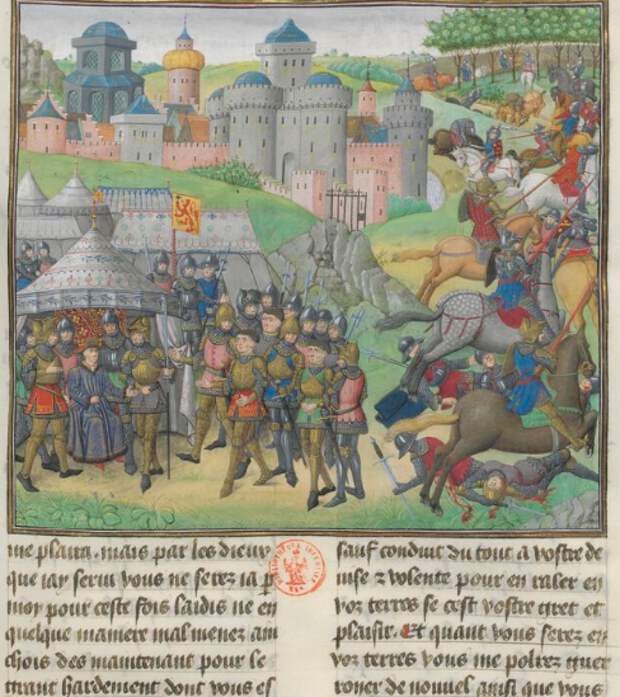 me plaira. mais par les dieux
que iay serui vous ne serez ia p
moy pour ceste fois laidis ne en
quelque maniere mal menez ain
chois des maintenant pour le
grant hardement dont vous es
sauf conduit du tout a vostre de
uise & volente pour en raler en
voz terres se cest vostre gret et
plaisir. Et quant vous serez en
voz terres vous me polrez guer
royer de nouuel ainsi que vous